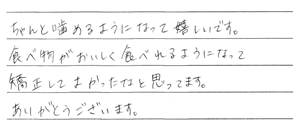 ちゃんと噛めるようになって嬉しいです。
食べ物がおいしく食べれるようになって
矯正してよかったなと思ってます。
ありがとうございます。